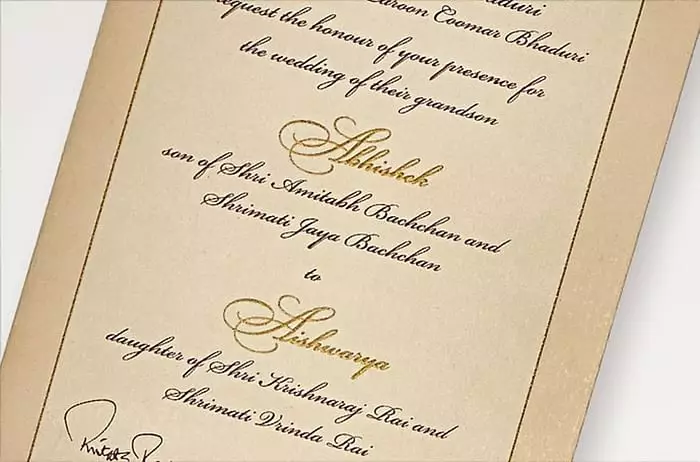 Taroon Coomar Bhaduri
request the honour of your presence for
the wedding of their grandson
Abhishek
son of Shri Amitabh Bachchan and
Shrimati Jaya Bachchan
to
Aishwarya
daughter of Shri Krishnaraj Rai and
Shrimati Vrinda Rai